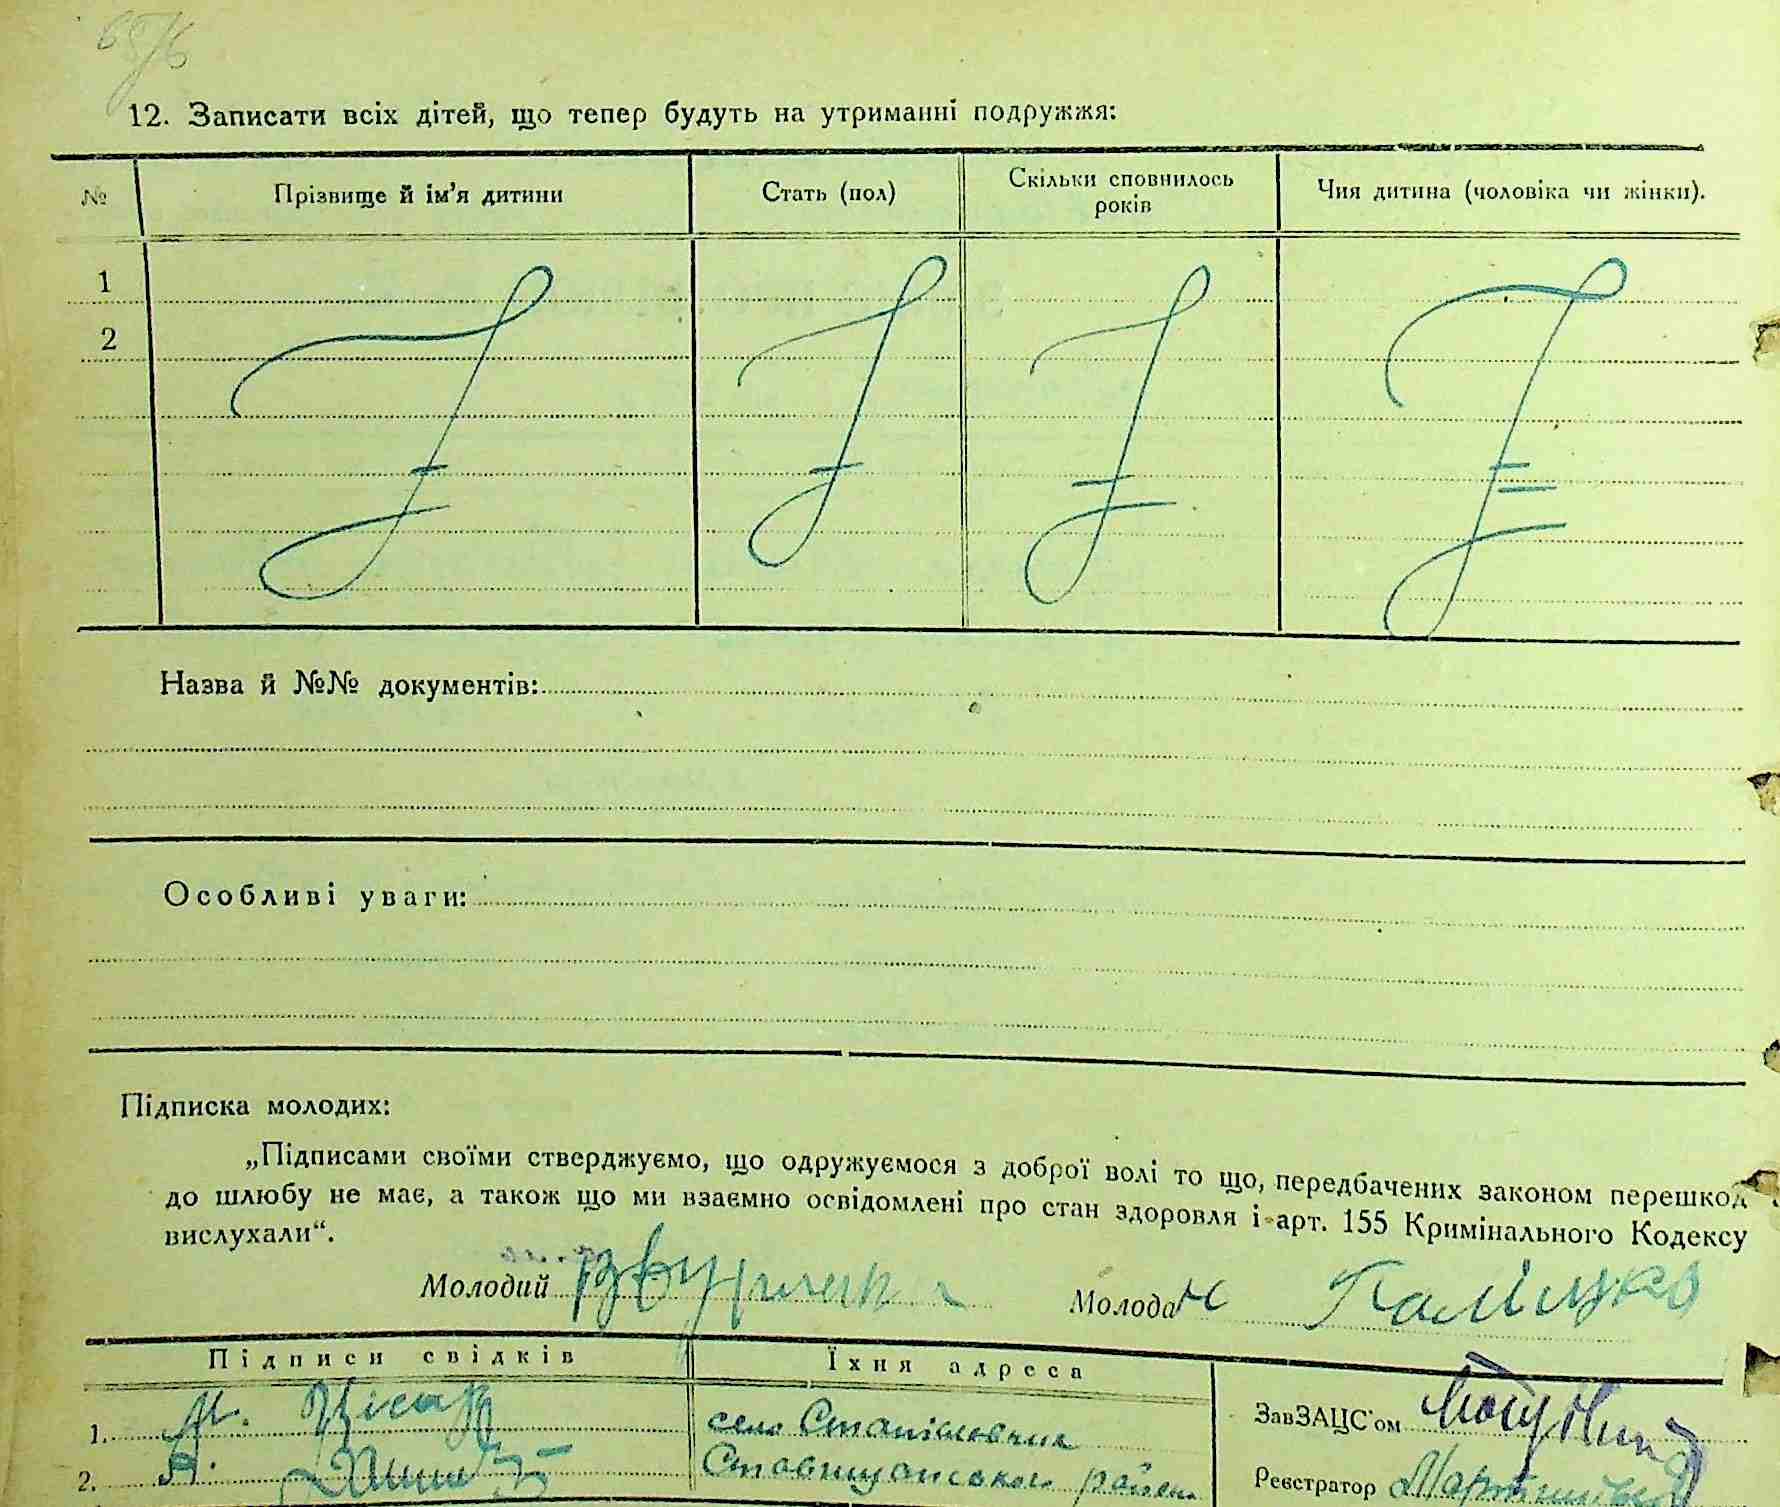 12. Записати всіх дітей, що тепер будуть на утриманні подружжя:
№ Прізвище й ім'я дитини Стать (пол) Скільки сповнилось років Чия дитина (чоловіка чи жінки).
1
2
Назва й №№ документів:
Особливі уваги:
Підписка молодих:
„Підписами своїми стверджуємо, що одружуємося з доброї волі то що, передбачених законом перешкод
до шлюбу не має, а також що ми взаємно освідомлені про стан здоровля і арт. 155 Кримінального Кодексу
вислухали“.
Молодий Молода
Підписи свідків Їхня адреса
ЗавЗАЦС'ом
1. М. село Станішовчик
2. А. Ставищанського район
Реєстратор